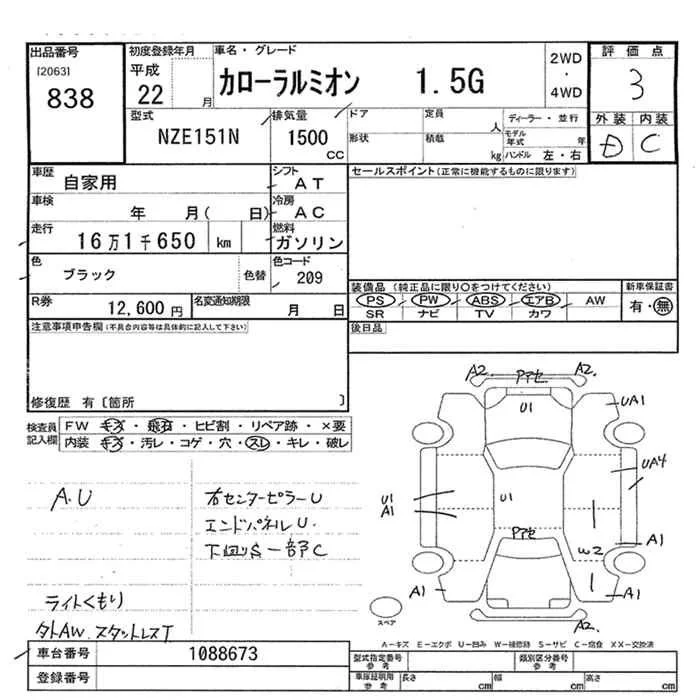 出品番号
[2063]
838
初度登録年月
平成
22 月
車名・グレード
カローラルミオン 1.5G
2WD
・
4WD
評価点
3
外装 内装
D C
型式
NZE151N
排気量
1500
CC
ドア
形状
定員
人
積載
kg
ディーラー・並行
モデル年式 年
ハンドル 左・右
車歴
自家用
シフト
AT
車検
年 月( 日)
冷房
AC
走行
16万1千650 km
燃料
ガソリン
色
ブラック
色替
色コード
209
R券
12,600円
名変通知期限
月 日
セールスポイント(正常に機能するものに限ります)
装備品(純正品に限り○をつけてください)
PS PW ABS エアB AW
SR ナビ TV カワ
新車保証書
有・無
後日品
注意事項申告欄(不具合内容等は具体的に記入して下さい)
修復歴 有〔箇所 〕
検査員記入欄
FW キズ・飛石・ヒビ割・リペア跡・×要
内装 キズ・汚レ・コゲ・穴・スレ・キレ・破レ
A.U
右センターピラーU
エンドパネルU.
下回りS一部C
ライトくもり
外AW.スタットレスT
A2. A2.
Pアセ
U1
UA1
UA4
U1
A1
U1
Pアセ
W2
A1
A1
A1
A2
スペア
A-キズ E-エクボ U-凹み W-補修跡 S-サビ C-腐食 XX-交換済
車台番号
1088673
登録番号
型式指定番号
参考
類別区分番号
参考
車庫証明用
参考
長さ cm
幅 cm
高さ cm